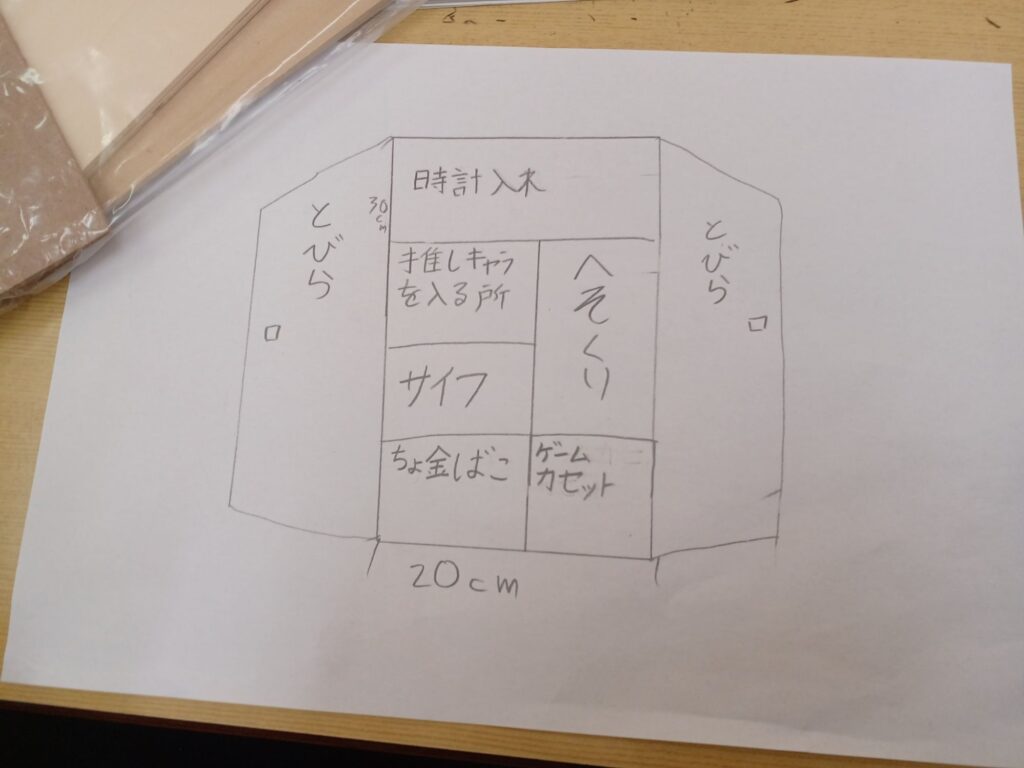 時計入れ
30cm
とびら
推しキャラ
を入る所
へそくり
とびら
サイフ
ちょ金ばこ
ゲーム
カセット
20cm